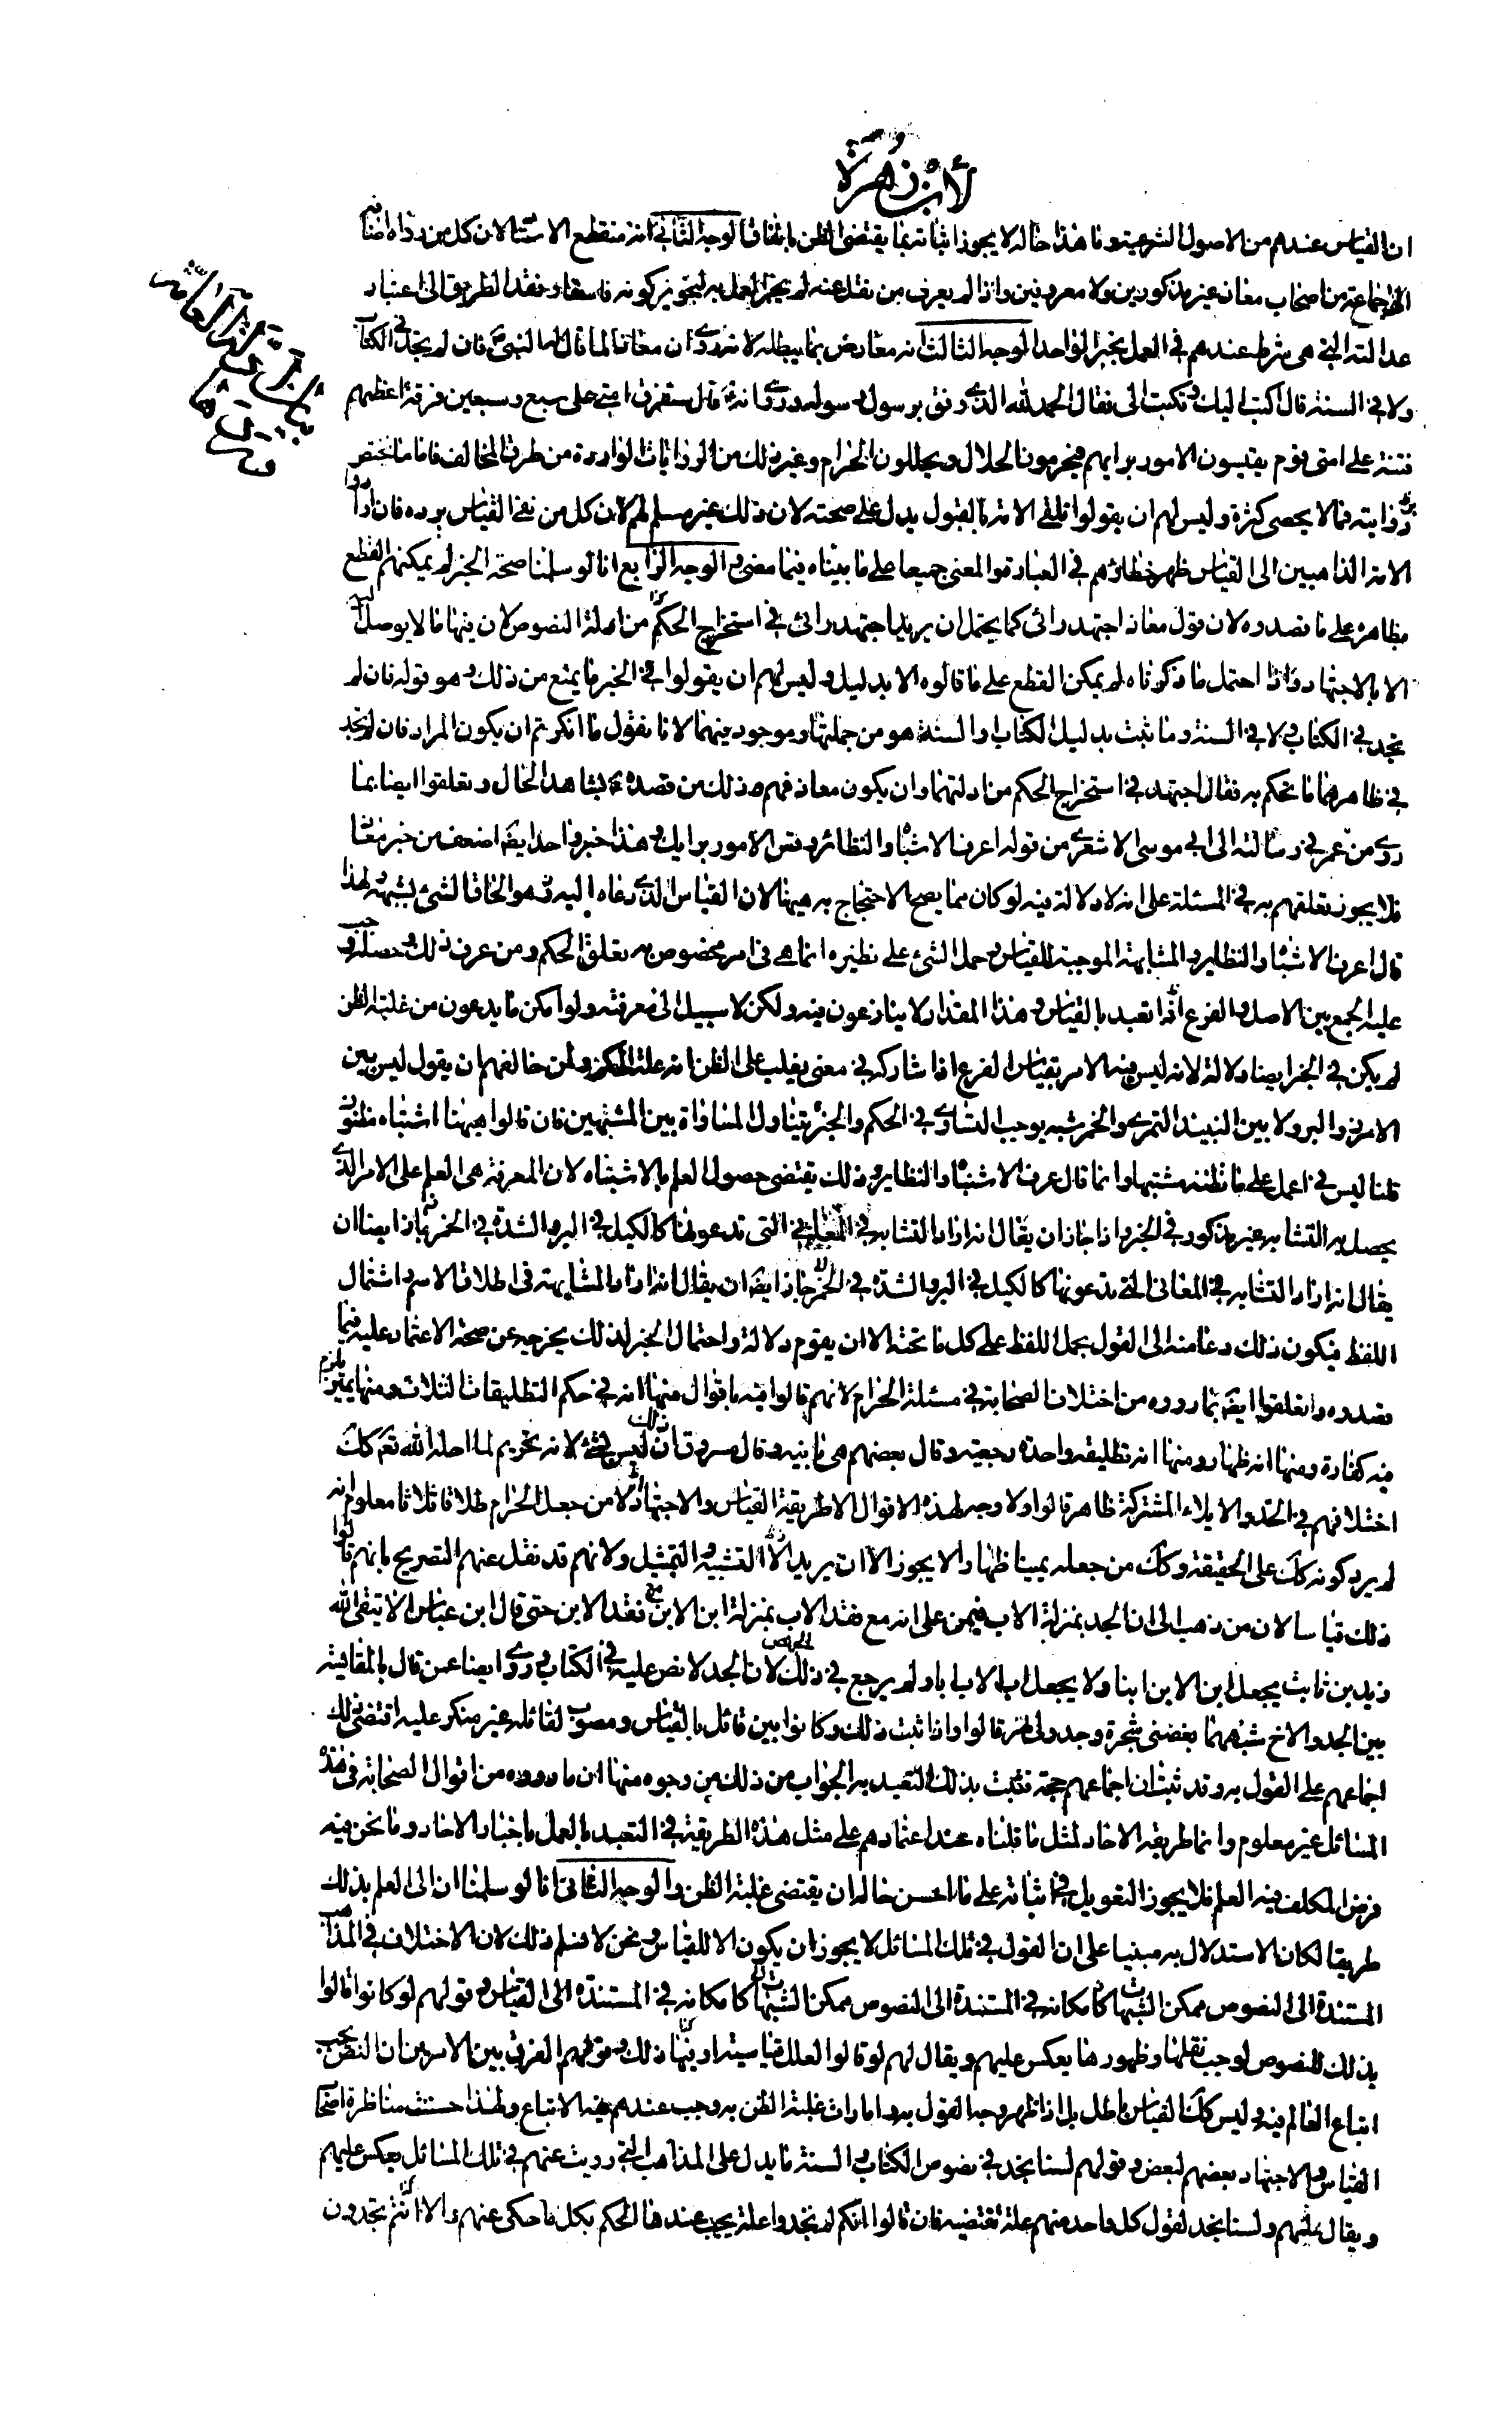 لابن زهرة
ان القياس عندهم من الاصول الشرعية وما هذا حاله لا يجوز اثباته بما يقتضى الظن باتفاق الوجه الثانى انه منقطع الاسناد لان كل من رواه اضافه
الى جماعة من اصحاب معاذ غير مذكورين ولا معروفين واذا لم يعرف من نقل عنه لم يجز العمل به لتجويز كونه فاسقا وفقد الطريق الى اعتبار
عدالته التى هى شرط عندهم فى العمل بخبر الواحد الوجه الثالث انه معارض بما يبطله لانه روى ان معاذا لما قال له النبى فان لم تجد فى الكتاب
ولا فى السنة قال اكتب اليك فتكتب الى فقال الحمد لله الذى وفق رسول رسوله وروى انه قال ستفترق امتى على بضع وسبعين فرقة اعظمهم
فتنة على امتى قوم يقيسون الامور برايهم فيحرمون الحلال ويحللون الحرام وغير ذلك من الروايات الواردة من طرق المخالف فاما ما نختص
بروايته فما لا يحصى كثرة وليس لهم ان يقولوا تلقى الامة بالقبول يدل على صحته لان ذلك غير مسلم لهم لان كل من نفى القياس يرده فان ارادوا
الامة الذاهبين الى القياس ظهر خطاؤهم فى العبارة والمعنى جميعا على ما بيناه فيما مضى والوجه الرابع انا لو سلمنا صحة الخبر لم يمكنهم القطع
بظاهره على ما قصدوه لان قول معاذ اجتهد رائى كما يحتمل ان يريد اجتهد رائى فى استخراج الحكم من ادلة النصوص لان فيها ما لا يوصل اليه
الا بالاجتهاد واذا احتمل ما ذكرناه لم يمكن القطع على ما قالوه الا بدليل وليس لهم ان يقولوا فى الخبر ما يمنع من ذلك وهو قوله فان لم
تجد فى الكتاب ولا فى السنة وما ثبت بدليل الكتاب والسنة هو من جملتها وموجود فيهما لانا نقول ما انكرتم ان يكون المراد فان لم تجد
فى ظاهرهما ما تحكم به فقال اجتهد فى استخراج الحكم من ادلتهما وان يكون معاذ فهم ذلك من قصده بشاهد الحال وتعلقوا ايضا بما
روى من عمر فى رسالته الى ابى موسى الاشعرى من قوله اعرف الاشباه والنظائر وقس الامور برايك وهذا خبر واحد ايضا اضعف من خبر معاذ
فلا يجوز تعلقهم به فى المسئلة على انه لا دلالة فيه لو كان مما يصح الاحتجاج به ههنا لان القياس الذى دعاه اليه هو الحاق الشئ بشبهه لهذا
قال اعرف الاشباه والنظاير والمشابهة الموجبة للقياس وحمل الشئ على نظيره انما هى فى امر مخصوص به تعلق الحكم ومن عرف ذلك وحصله وجب
عليه الجمع بين الاصل والفرع اذا تعبد بالقياس وهذا المقدار لا ينازعون فيه ولكن لا سبيل الى معرفته ولو امكن ما يدعون من غلبة الظن
لم يكن فى الخبر ايضا دلالة لانه ليس فيه الامر بقياس الفرع اذا شاركه فى معنى يغلب على الظن انه علة الحكم ولمن خالفهم ان يقول ليس بين
الارز والبر ولا بين النبيذ التمرى والخمر شبه يوجب التساوى فى الحكم والخبر يتناول المساواة بين المشتبهين فان قالوا ههنا اشتباه مظنون
قلنا ليس فى اعمل على ما تظنه مشتبها وانما قال عرف الاشباه والنظاير وذلك يقتضى حصول العلم بالاشتباه لان المعرفة هى العلم على الامر الذى
يحصل به التشابه غير مذكور فى الخبر واذا جاز ان يقال انه اراد التشابه فى المعانى التى تدعونها كالكيل فى البر والشدة فى الخمر جاز ايضا ان
يقال انه اراد التشابه فى المعانى التى تدعونها كالكيل فى البر والشدة فى الخمر جاز ايضا ان يقال انه اراد المشابهة فى اطلاق الاسم واشتمال
اللفظ فيكون ذلك دعا منه الى القول بحمل اللفظ على كل ما تحته الا ان يقوم دلالة واحتمال الخبر لذلك يخرجه عن صحة الاعتماد عليه فيما
قصدوه وتعلقوا ايضا بما رووه من اختلاف الصحابة فى مسئلة الحرام لانهم قالوا فيه باقوال منها انه فى حكم التطليقات الثلاث ومنها يمين يلزم
فيه كفارة ومنها انه ظهار ومنها انه تطليقة واحدة رجعية وقال بعضهم هى بائنة وقال مسروق ان ذلك ليس بشئ لانه تحريم لما احله الله تعالى كك
اختلافهم فى الجد والايلاء المشتركة ظاهرة قالوا ولا وجه لهذه الاقوال الا طريقة القياس والاجتهاد لان من جعل الحرام طلاقا ثلاثا معلوم انه
لم يرد كونه كك على الحقيقة وكك من جعله يمينا وظهارا لا يجوز الا ان يريد الا التشبيه والتمثيل ولانهم قد نقل عنهم التصريح بانهم قالوا
ذلك قياسا لان من ذهب الى ان الجد بمنزلة الاب فيهن على انه مع فقد الاب بمنزلة ابن الابن مع فقد الابن حتى قال ابن عباس الا يتقى الله
زيد بن ثابت يجعل ابن الابن ابنا ولا يجعل اب الاب ابا ولم يرجع فى ذلك الى نص لان الجد لا نص عليه فى الكتاب وروى ايضا عمن قال بالمقايسة
بين الجد والاخ شبههما بغصنى شجرة وجدولى نهر قالوا واذا ثبت ذلك وكانوا بين قائل بالقياس ومصوب لقائله غير منكر عليه اقتضى ذلك
اجماعهم على القول به وقد ثبت ان اجماعهم حجة فثبت بذلك التعبد به الجواب من ذلك من وجوه منها ان ما رووه من اقوال الصحابة فى هذه
المسائل غير معلوم وانما طريقه الاحاد لمثل ما قلناه عند اعتمادهم على مثل هذه الطريقة فى التعبد بالعمل باخبار الاحاد وما نحن فيه
فرض المكلف فيه العلم فلا يجوز التعويل فى اثباته على ما احسن حاله ان يقتضى غلبة الظن والوجه الثانى انا لو سلمنا ان الى العلم بذلك
طريقا لكان الاستدلال به مبنيا على ان القول فى تلك المسائل لا يجوز ان يكون الا للقياس ونحن لا نسلم ذلك لان الاختلاف فى المذاهب
المستندة الى النصوص ممكن الشبهات كامكانه فى المستندة الى النصوص ممكن الشبهات كامكانه فى المستندة الى القياس وقولهم لو كانوا قالوا
بذلك للنصوص لوجب نقلها وظهورها يعكس عليهم ويقال لهم لو قالوا العلل قياسية ذلك وقولهم الفرق بين الامرين ان النص يجب
اتباع العالم فيه وليس كك القياس باطل بل اذا ظهر وجه القول به وامارات غلبة الظن به وجب عندهم فيه الاتباع ولهذا حسنت مناظرة اصحاب
القياس والاجتهاد بعضهم لبعض وقولهم لسنا نجد فى نصوص الكتاب والسنة ما يدل على المذاهب التى رويت عنهم فى تلك المسائل يعكس عليهم
ويقال عليهم ولسنا نجد لقول كل واحد منهم علة تقتضيه فان قالوا انكم لم تجدوا علة يجب عندها الحكم بكل ما حكى عنهم والا انتم تجدون